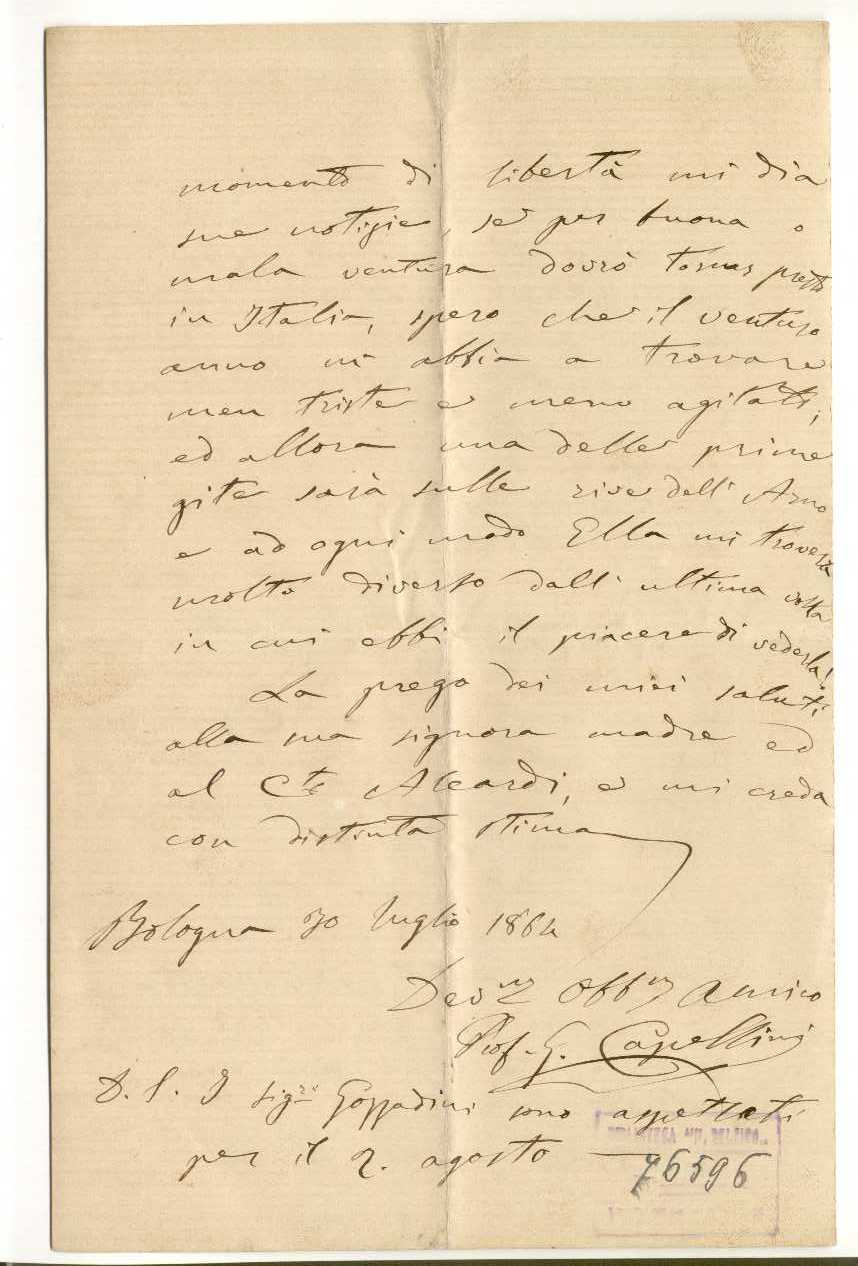 momento di libertà mi dia
sue notizie, se per buona o
mala ventura dovrò tornar presto
in Italia, spero che il venturo
anno mi abbia a trovare
men triste e meno agitato,
ed allora una delle prime
gite sarà sulle rive dell'Arno
e ad ogni modo Ella mi troverà
molto diverso dall'ultima volta
in cui ebbi il piacere di vederla!
La prego dei miei saluti
alla sua signora madre ed
al Cte Aleardi, e mi creda
con distinta stima
Bologna 30 luglio 1864
Devmo Obbmo Amico
Prof. G. Capellini
P. S. I sigri Gozzadini sono aspettati
per il 2. agosto —
76596